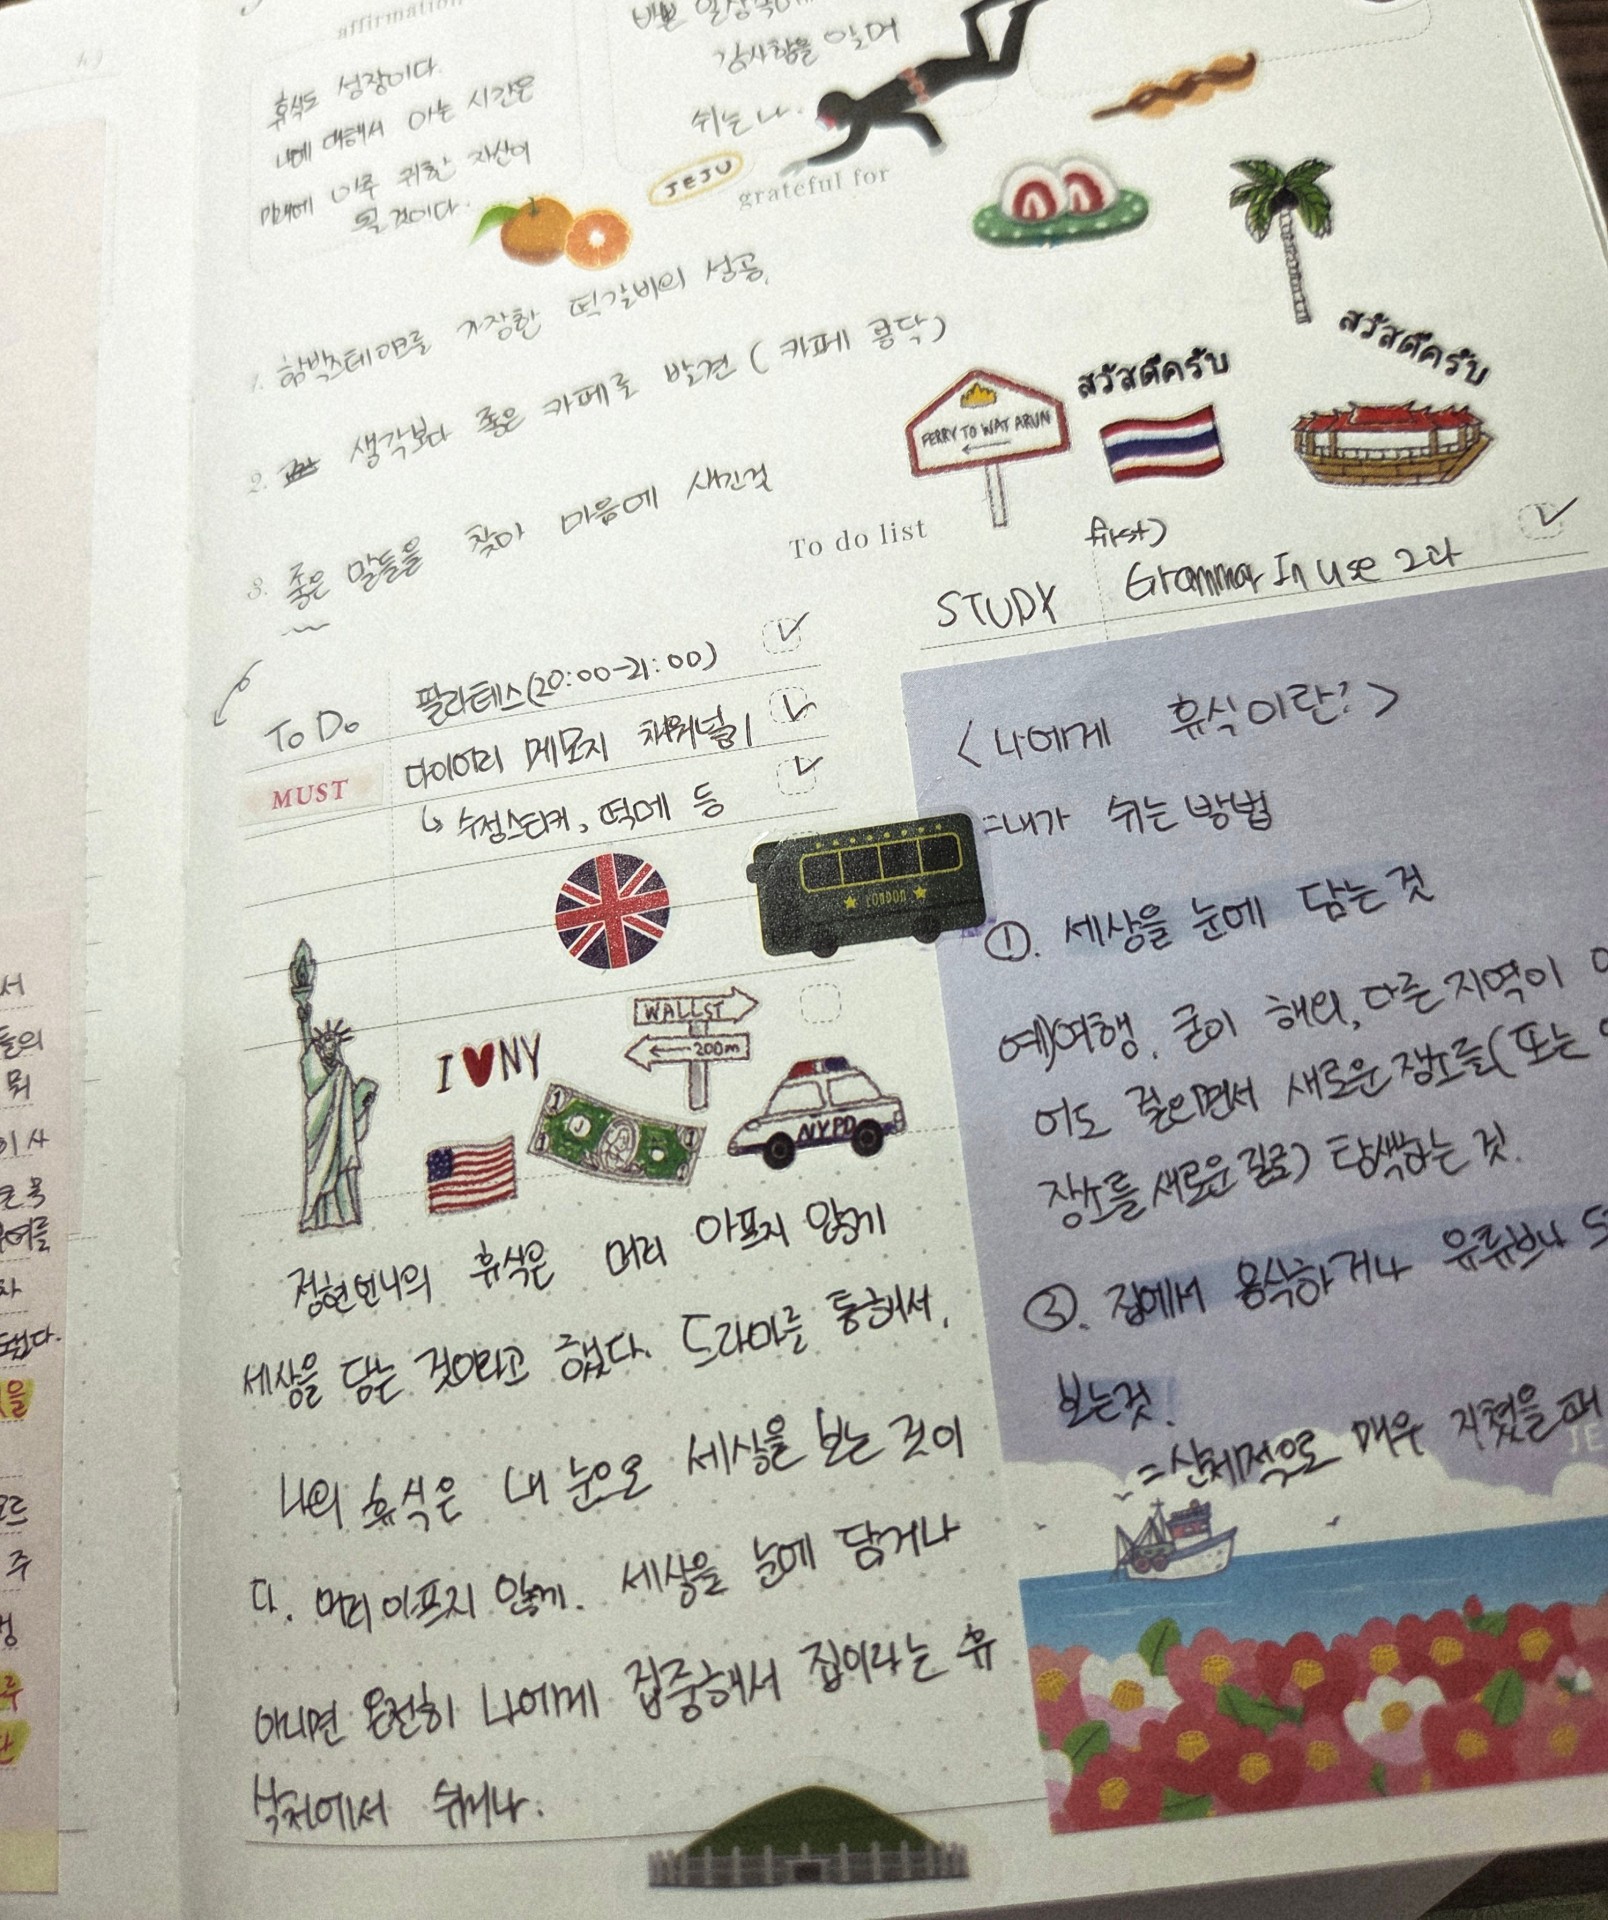 affirmation
휴식도 성장이다.
나에 대해서 아는 시간은
미래에 아주 귀한 자산이
될 것이다.
바쁜 일상속에
감사함을 알며
쉬는 나.
JEJU
grateful for
1. 함박스테이크를 가장한 떡갈비의 성공.
2. 생각보다 좋은 카페로 발견 (카페 콩닥)
3. 좋은 말들을 찾아 마음에 새긴것
สวัสดีครับ
สวัสดีครับ
FERRY TO WAT ARUN
To do list
To Do
필라테스(20:00-21:00)
MUST
다이어리 메모지 채워넣기
↳ 수정스티커, 떡메 등
first)
STUDY
Grammar In use 2과
LONDON
I ♥ NY
WALL ST
200m
NYPD
정현언니의 휴식은 머리 아프지 않게
세상을 담는 것이라고 했다. 드라마를 통해서.
나의 휴식은 내 눈으로 세상을 보는 것이
다. 머리 아프지 않게. 세상을 눈에 담거나
아니면 온전히 나에게 집중해서 집이라는 휴
식처에서 쉬거나.
<나에게 휴식이란?>
=내가 쉬는 방법
①. 세상을 눈에 담는 것
예)여행. 굳이 해외, 다른 지역이
어도 걸으면서 새로운 장소를(또는
장소를 새로운 길로) 탐색하는 것.
②. 집에서 용식하거나 유튜브나
보는것.
=신체적으로 매우 지쳤을 때
JE
서
들의
뭐
주